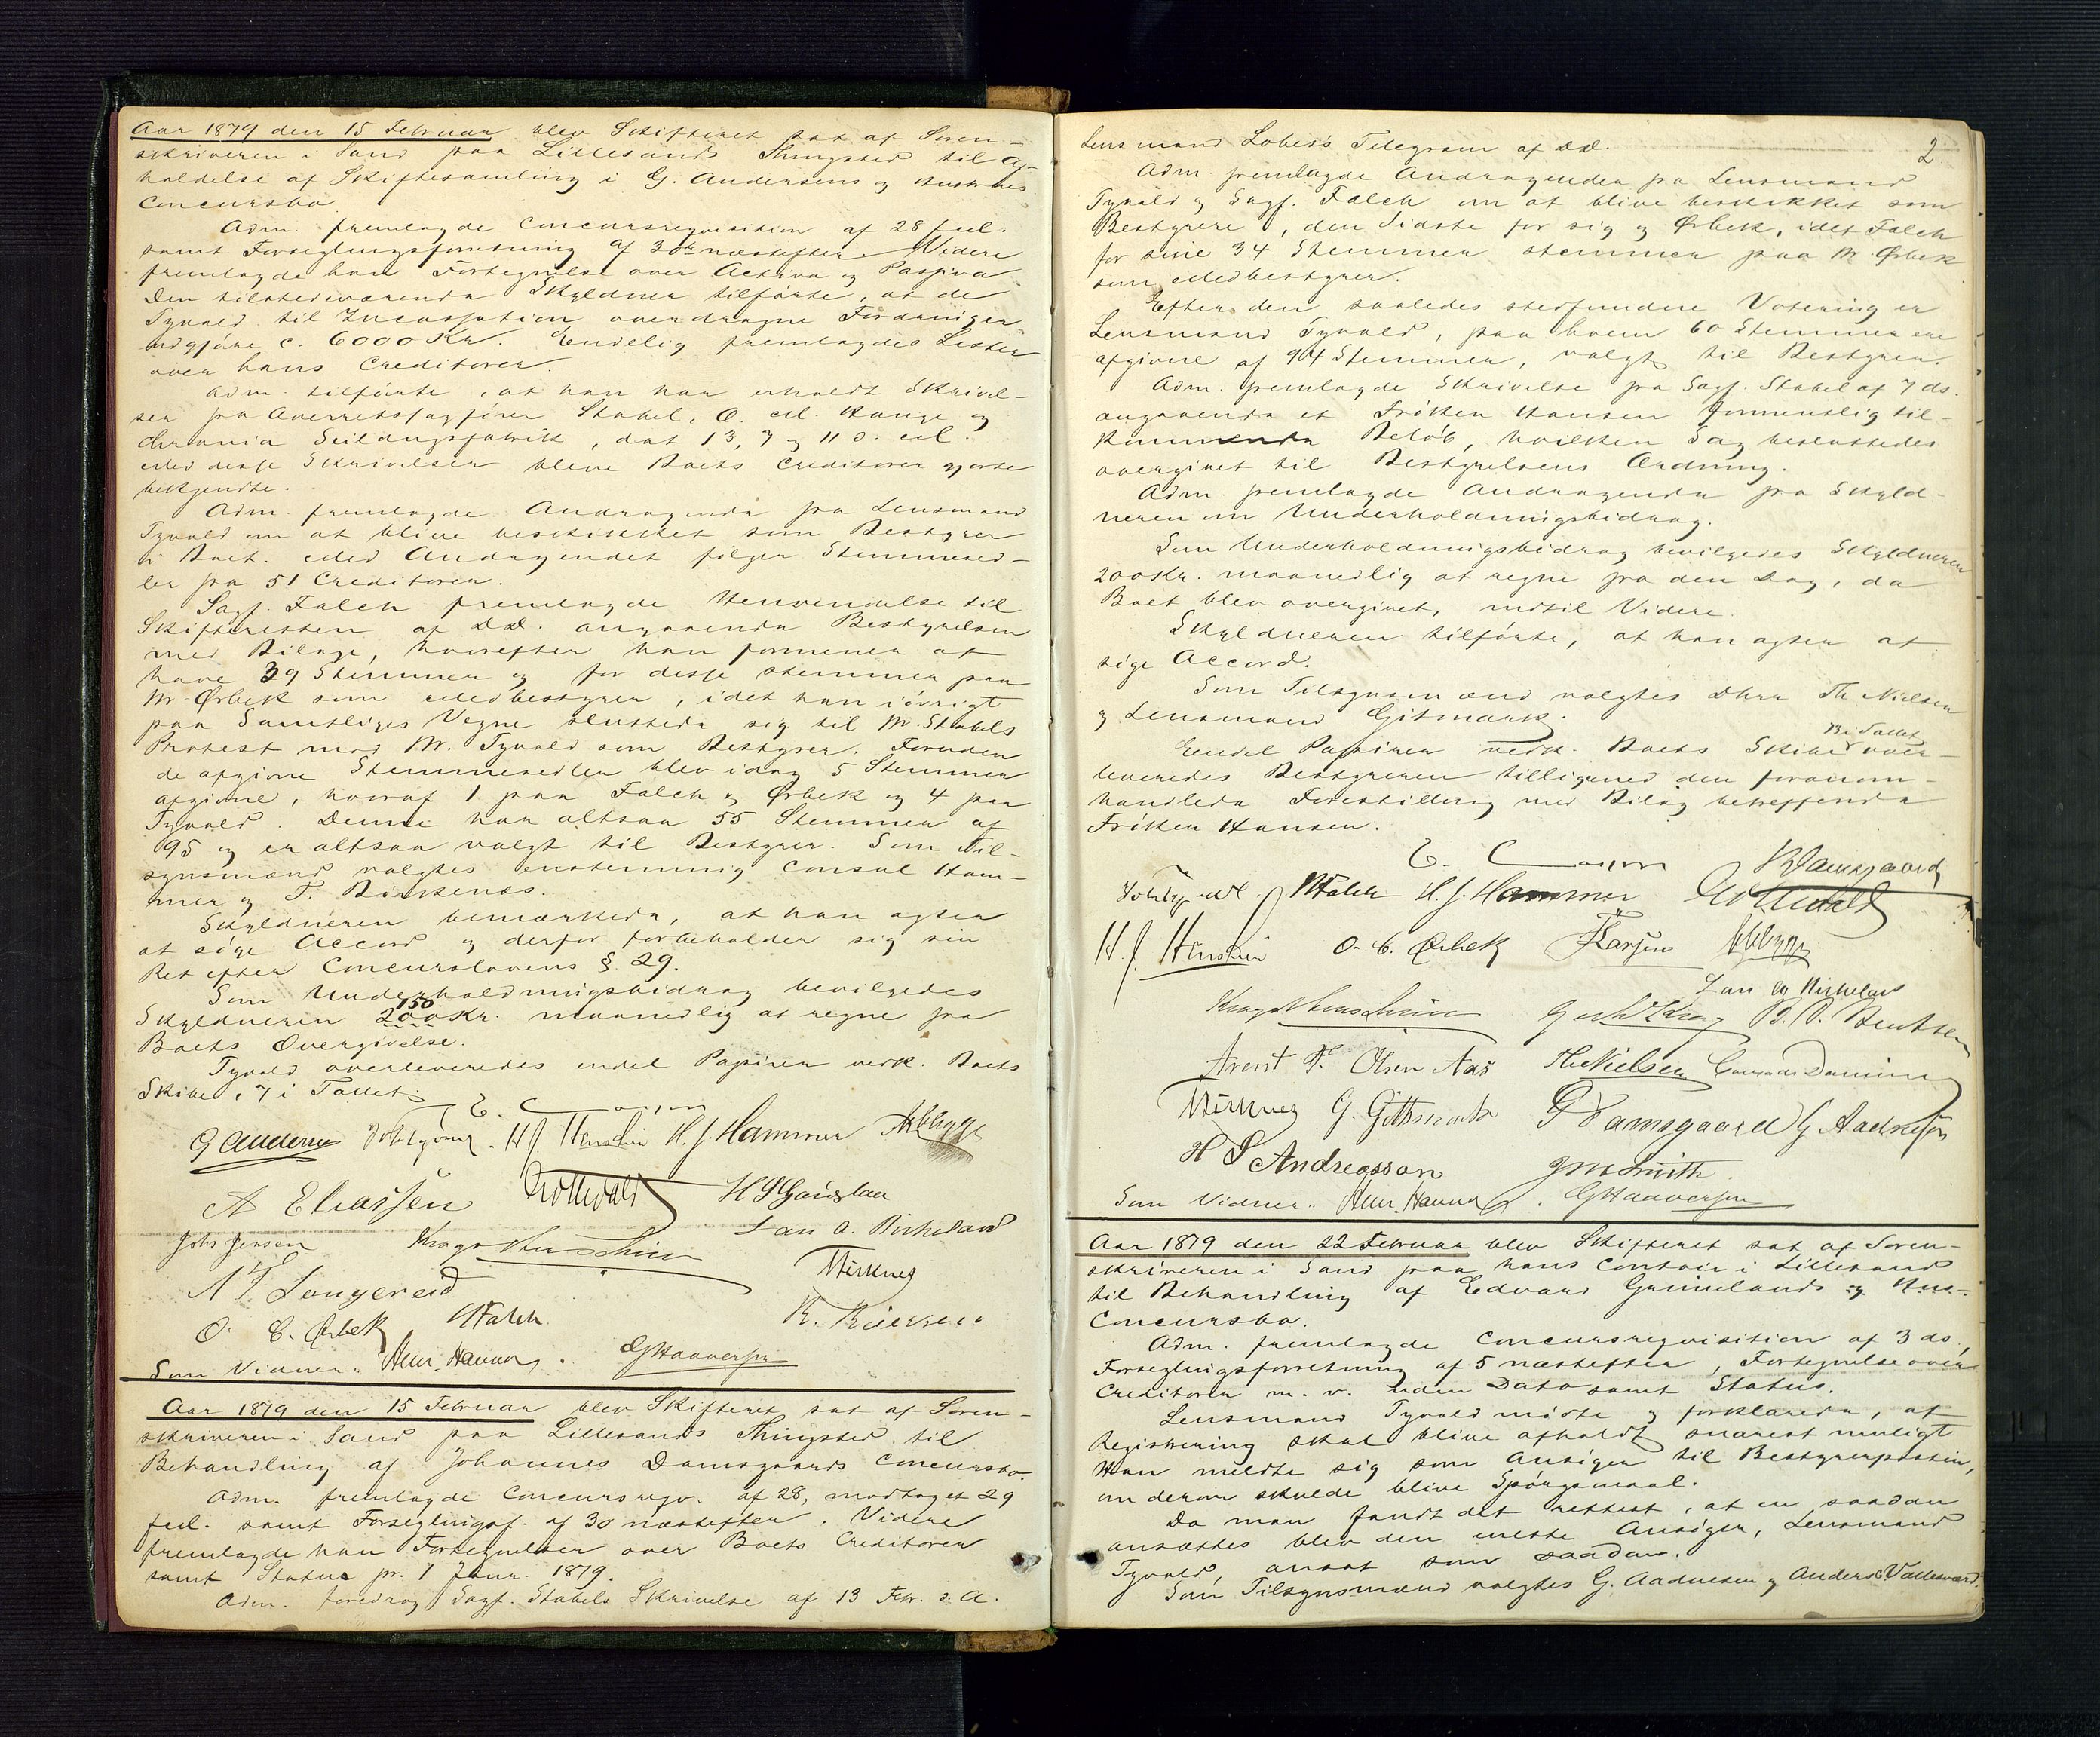 Aar 1879 den 15 Februar blev Skifteret sat af Soren-
skriveren i Sand paa Lillesands Thingsted til Af-
holdelse af Skiftesamling i G. Andersens og Hustrues
Concursbo.
Adm. fremlagde Concursrequisition af 28 f.
samt Forseglingsforretning af 30te næstefter. Videre
fremlagde han Fortegnelse over Activa og Passiva.
Den tilstedeværende Skyldner tilførte, at de
Tyvold til Incassation overdragne Fordringer
udgjøre c. 6000 Kr. Endelig fremlagdes Lister
over hans Creditorer.
Adm. tilførte, at han har erholdt Skrivel-
ser fra Overretssagfører Stabel, O. M. Hauge og
Chrania Seildugsfabrik, dat 13, 7 og 11 d. M.
Med disse Skrivelser bleve Boets Creditorer gjorte
bekjendte.
Adm. fremlagde Andragende fra Lensmand
Tyvold om at blive beskikket som Bestyrer
i Boet. Med Andragendet følger Stemmesed-
ler fra 51 Creditorer.
Sagf. Falch fremlagde Henvendelse til
Skifteretten af D.d. angaaende Bestyrelsen
med Bilage, hvorefter han formener at
have 39 Stemmer og for disse stemmer paa
Mr Ørbek som Medbestyrer, idet han iøvrigt
paa Samtliges Vegne sluttede sig til Mr. Stabels
Protest mod Mr. Tyvold som Bestyrer. Foruden
de afgivne Stemmesedler blev idag 5 Stemmer
afgivne, hvoraf 1 paa Falch og Ørbek og 4 paa
Tyvold. Denne har altsaa 55 Stemmer af
95 og er altsaa valgt til Bestyrer. Som Til-
synsmænd valgtes enstemmig Consul Ham-
mer og T. Birkenæs.
Skyldneren bemærkede, at han agter
at søge Accord og derfor forbeholder sig sin
Ret efter Concurslovens §. 29.
Som Underholdningsbidrag bevilgedes
150
Skyldneren 200 Kr. maanedlig at regne fra
Boets Overgivelse.
Tyvold overleveredes endel Papirer vedk. Boets
Skibe, 7 i Tallet.
G Andersen H. J. Hammer
A Eliassen
Johs Jensen Lan a. Birkeland
O. C. Ørbek Falch
Som Vidner: Henr. Hanner. G Haaversen
Aar 1879 den 15 Februar blev Skifteret sat af Soren-
skriveren i Sand paa Lillesands Thingsted til
Behandling af Johannes Damsgaards Concursbo.
Adm. fremlagde Concursreqv. af 28, modtaget 29
f. samt Forseglingsf. af 30 næstefter. Videre
fremlagde han Fortegnelser over Boets Creditorer
samt Status pr. 1 Janr. 1879.
Adm. foredrog Sagf. Stabels Skrivelse af 13 Febr. d. A.
2
Lensmand Tellegram af D.d.
Adm. fremlagde Andragender fra Lensmand
Tyvold og Sagf. Falch om at blive beskikket som
Bestyrere, den Sidste for sig og Ørbek, idet Falch
for sine 34 Stemmer stemmer paa Mr. Ørbek
som Medbestyrer.
Efter den saaledes stedfundne Votering er
Lensmand Tyvold, paa hvem 60 Stemmer ere
afgivne af 94 Stemmer, valgt til Bestyrer.
Adm. fremlagde Skrivelse fra Sagf. Stabel af 7 ds.
angaaende et Frøken Hansen formentlig til-
kommende Beløb, hvilken Sag besluttedes
overgivet til Bestyrelsens Ordning.
Adm. fremlagde Andragende fra Skyld-
neren om Underholdningsbidrag.
Som Underholdningsbidrag bevilgedes Skyldneren
200 Kr. maanedlig at regne fra den Dag, da
Boet blev overgivet, indtil Videre.
Skyldneren tilførte, at han agter at
søge Accord.
Som Tilsynsmænd valgtes Dhrr Th. Nielsen
og Lensmand Gitmark.
Tallet
Endel Papirer vedk. Boets Skibe over-
leveredes Bestyreren tilligemed den foranom-
handlede Forestilling med Bilag betreffende
Frøken Hansen.
Damsgaard
Falch H. J. Hammer
O. C. Ørbek
Lan a Birkeland
Arent F. Olsen Aas Th Nielsen
G. Gitmark Damsgaard G Aadnesøn
H S Andreassen J M Smith
Som Vidner: Henr. Hanner. G Haaversen
Aar 1879 den 22 Februar blev Skifteret sat af Soren-
skriveren i Sand paa hans Contoir i Lillesand
til Behandling af Edvard Grimelands og Hus.
Concursbo.
Adm. fremlagde Concursrequisition af 3 ds,
Forseglingsforretning af 5 næstefter, Fortegnelse over
Creditorer m. v. uden Dato samt Status.
Lensmand Tyvold mødte og forklarede, at
Registrering skal blive afholdt snarest muligt
Han meldte sig som Ansøger til Bestyrerposten,
om derom skulde blive Spørgsmaal.
Da man fandt det rettest, at en saadan
ansættes blev den eneste Ansøger, Lensmand
Tyvold, ansat som saadan.
Som Tilsynsmænd valgtes G. Aadnesen og Anders Vallesværd.